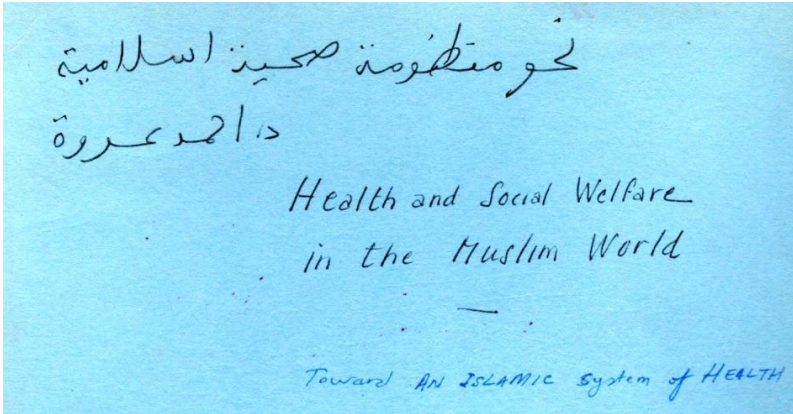 نحو منظومة صحية اسلامية
د. احمد عروة
Health and Social Welfare
in the Muslim World
—
Toward AN ISLAMIC System of HEALTH